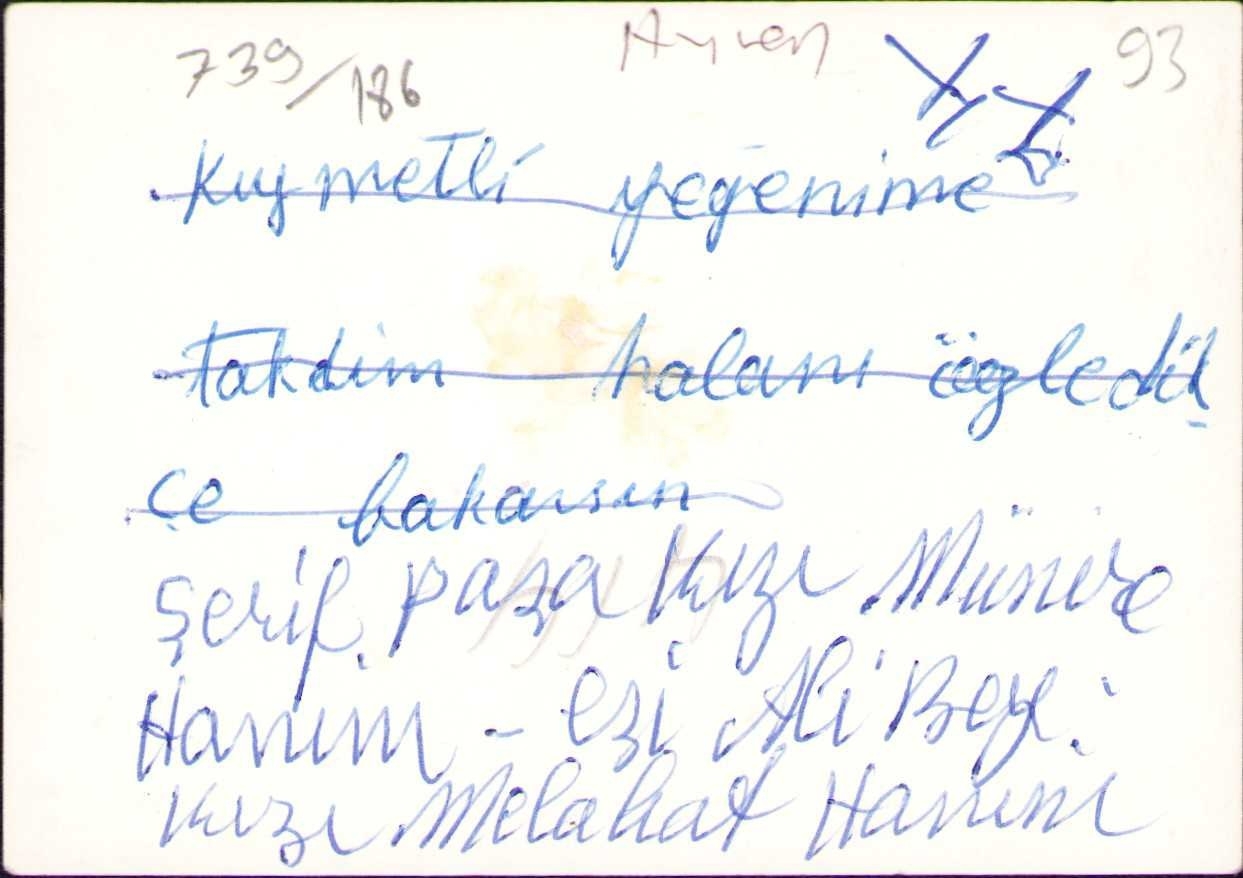 739/186 Ayven 93
Kıymetli yeğenime
takdim halanı özledik
çe bakarsın
Şerif paşa Kızı Münire
Hanım - eşi Ali Bey.
Kızı Melahat Hanım